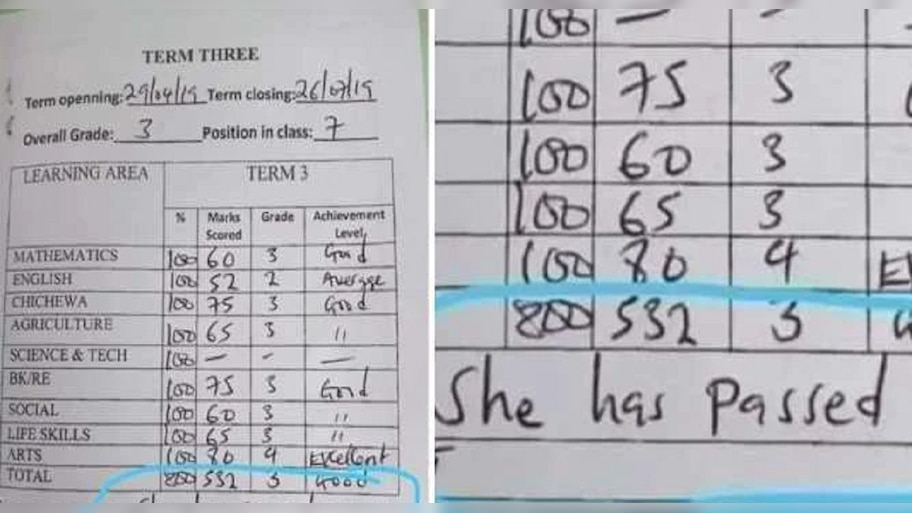 TERM THREE
Term openning: 29/04/19 Term closing: 26/07/19
Overall Grade: 3 Position in class: 7
LEARNING AREA TERM 3
% Marks Scored Grade Achievement Level
MATHEMATICS 100 60 3 Good
ENGLISH 100 52 2 Average
CHICHEWA 100 75 3 Good
AGRICULTURE 100 65 3 "
SCIENCE & TECH 100 — — —
BK/RE 100 75 3 Good
SOCIAL 100 60 3 "
LIFE SKILLS 100 65 3 "
ARTS 100 80 4 Excellent
TOTAL 800 532 3 Good
100 — -
100 75 3
100 60 3
100 65 3
100 80 4
800 532 3
She has passed